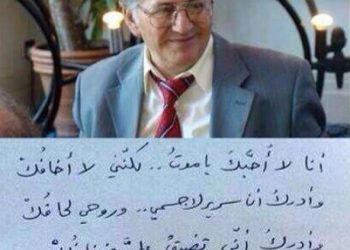 أنا لا أُحبُّكَ يا موتُ.. لكنّني لا أخافُكْ
وأدركُ أنَّ سريركَ جسمي.. وروحي لحافُكْ
وأدركُ أنّي تضيقُ عليَّ ضفافُكْ